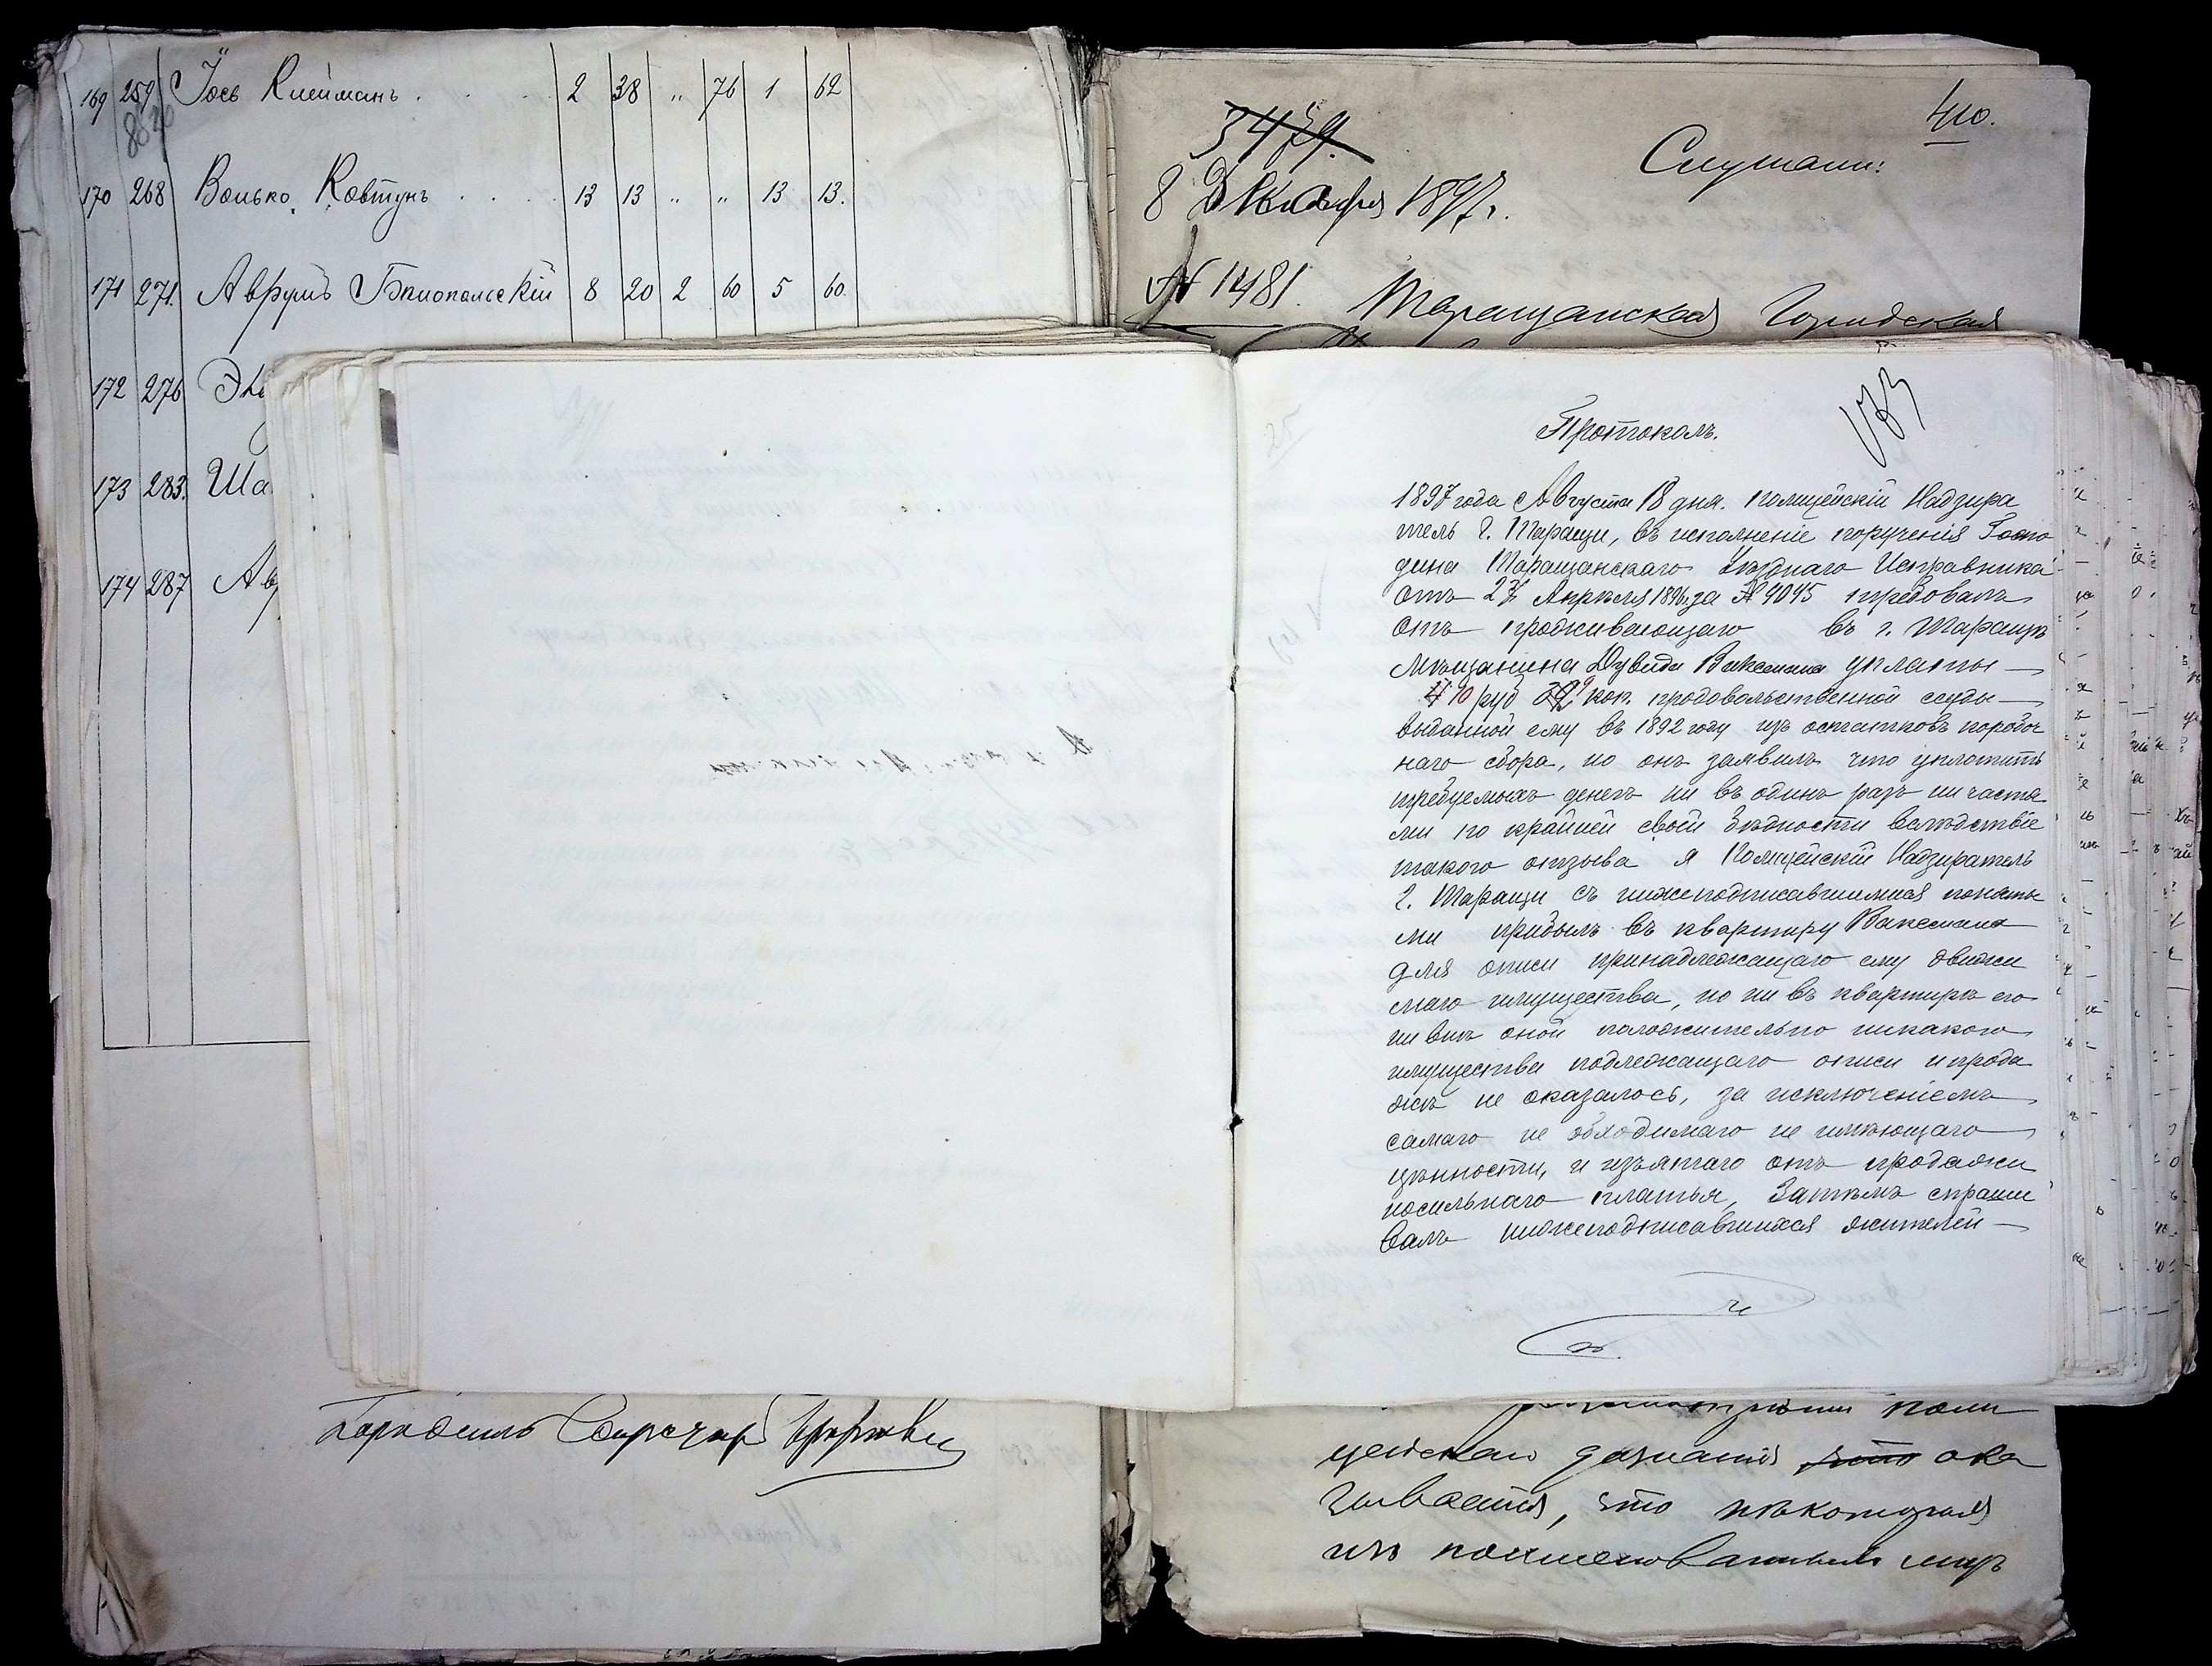 169 259 Іось Клейманъ . . . 2 38 „ 76 1 62
170 268 Волько Ковтунъ . . . . 13 13 „ „ 13 13.
171 271. Аврумъ Бѣлопольскій 8 20 2 60 5 60.
172 276
173 283. Ша
174 287 Ав
410.
Слушали:
8 Декабря 1897 г.
№ 1481. Таращанская Городская
Протоколъ.
1897 года Августа 18 дня. Полицейскій Надзира
тель г. Таращи, въ исполненіе порученія Госпо
дина Таращанскаго Уѣзднаго Исправника
отъ 27 Апрѣля 1896 г. за № 4045 требовалъ
отъ проживающаго въ г. Таращѣ
мѣщанина Дувида Ваксмана уплаты
10 руб коп. продовольственной ссуды
выданной ему въ 1892 году изъ остатковъ коробоч
наго сбора, но онъ заявилъ что уплотить
требуемыхъ денегъ ни въ одинъ разъ ни частя
ми по крайней своей бѣдности вслѣдствіе
такого отзыва я Полицейскій Надзиратель
г. Таращи съ нижеподписавшимися поняты
ми прибылъ въ квартиру Ваксмана
для описи принадлежащаго ему движи
маго имущества, но ни въ квартирѣ его
ни внѣ оной положительно никакого
имущества подлежащаго описи и прода
жѣ не оказалось, за исключеніемъ
самаго не обходимаго не имѣющаго
цѣнности, и изъятаго отъ продажи
носильнаго платья, Затѣмъ спраши
валъ нижеподписавшихся жителей
поли
цейскаго дознанія что ока
зывается, что нѣкоторыя
изъ поименованныхъ лицъ